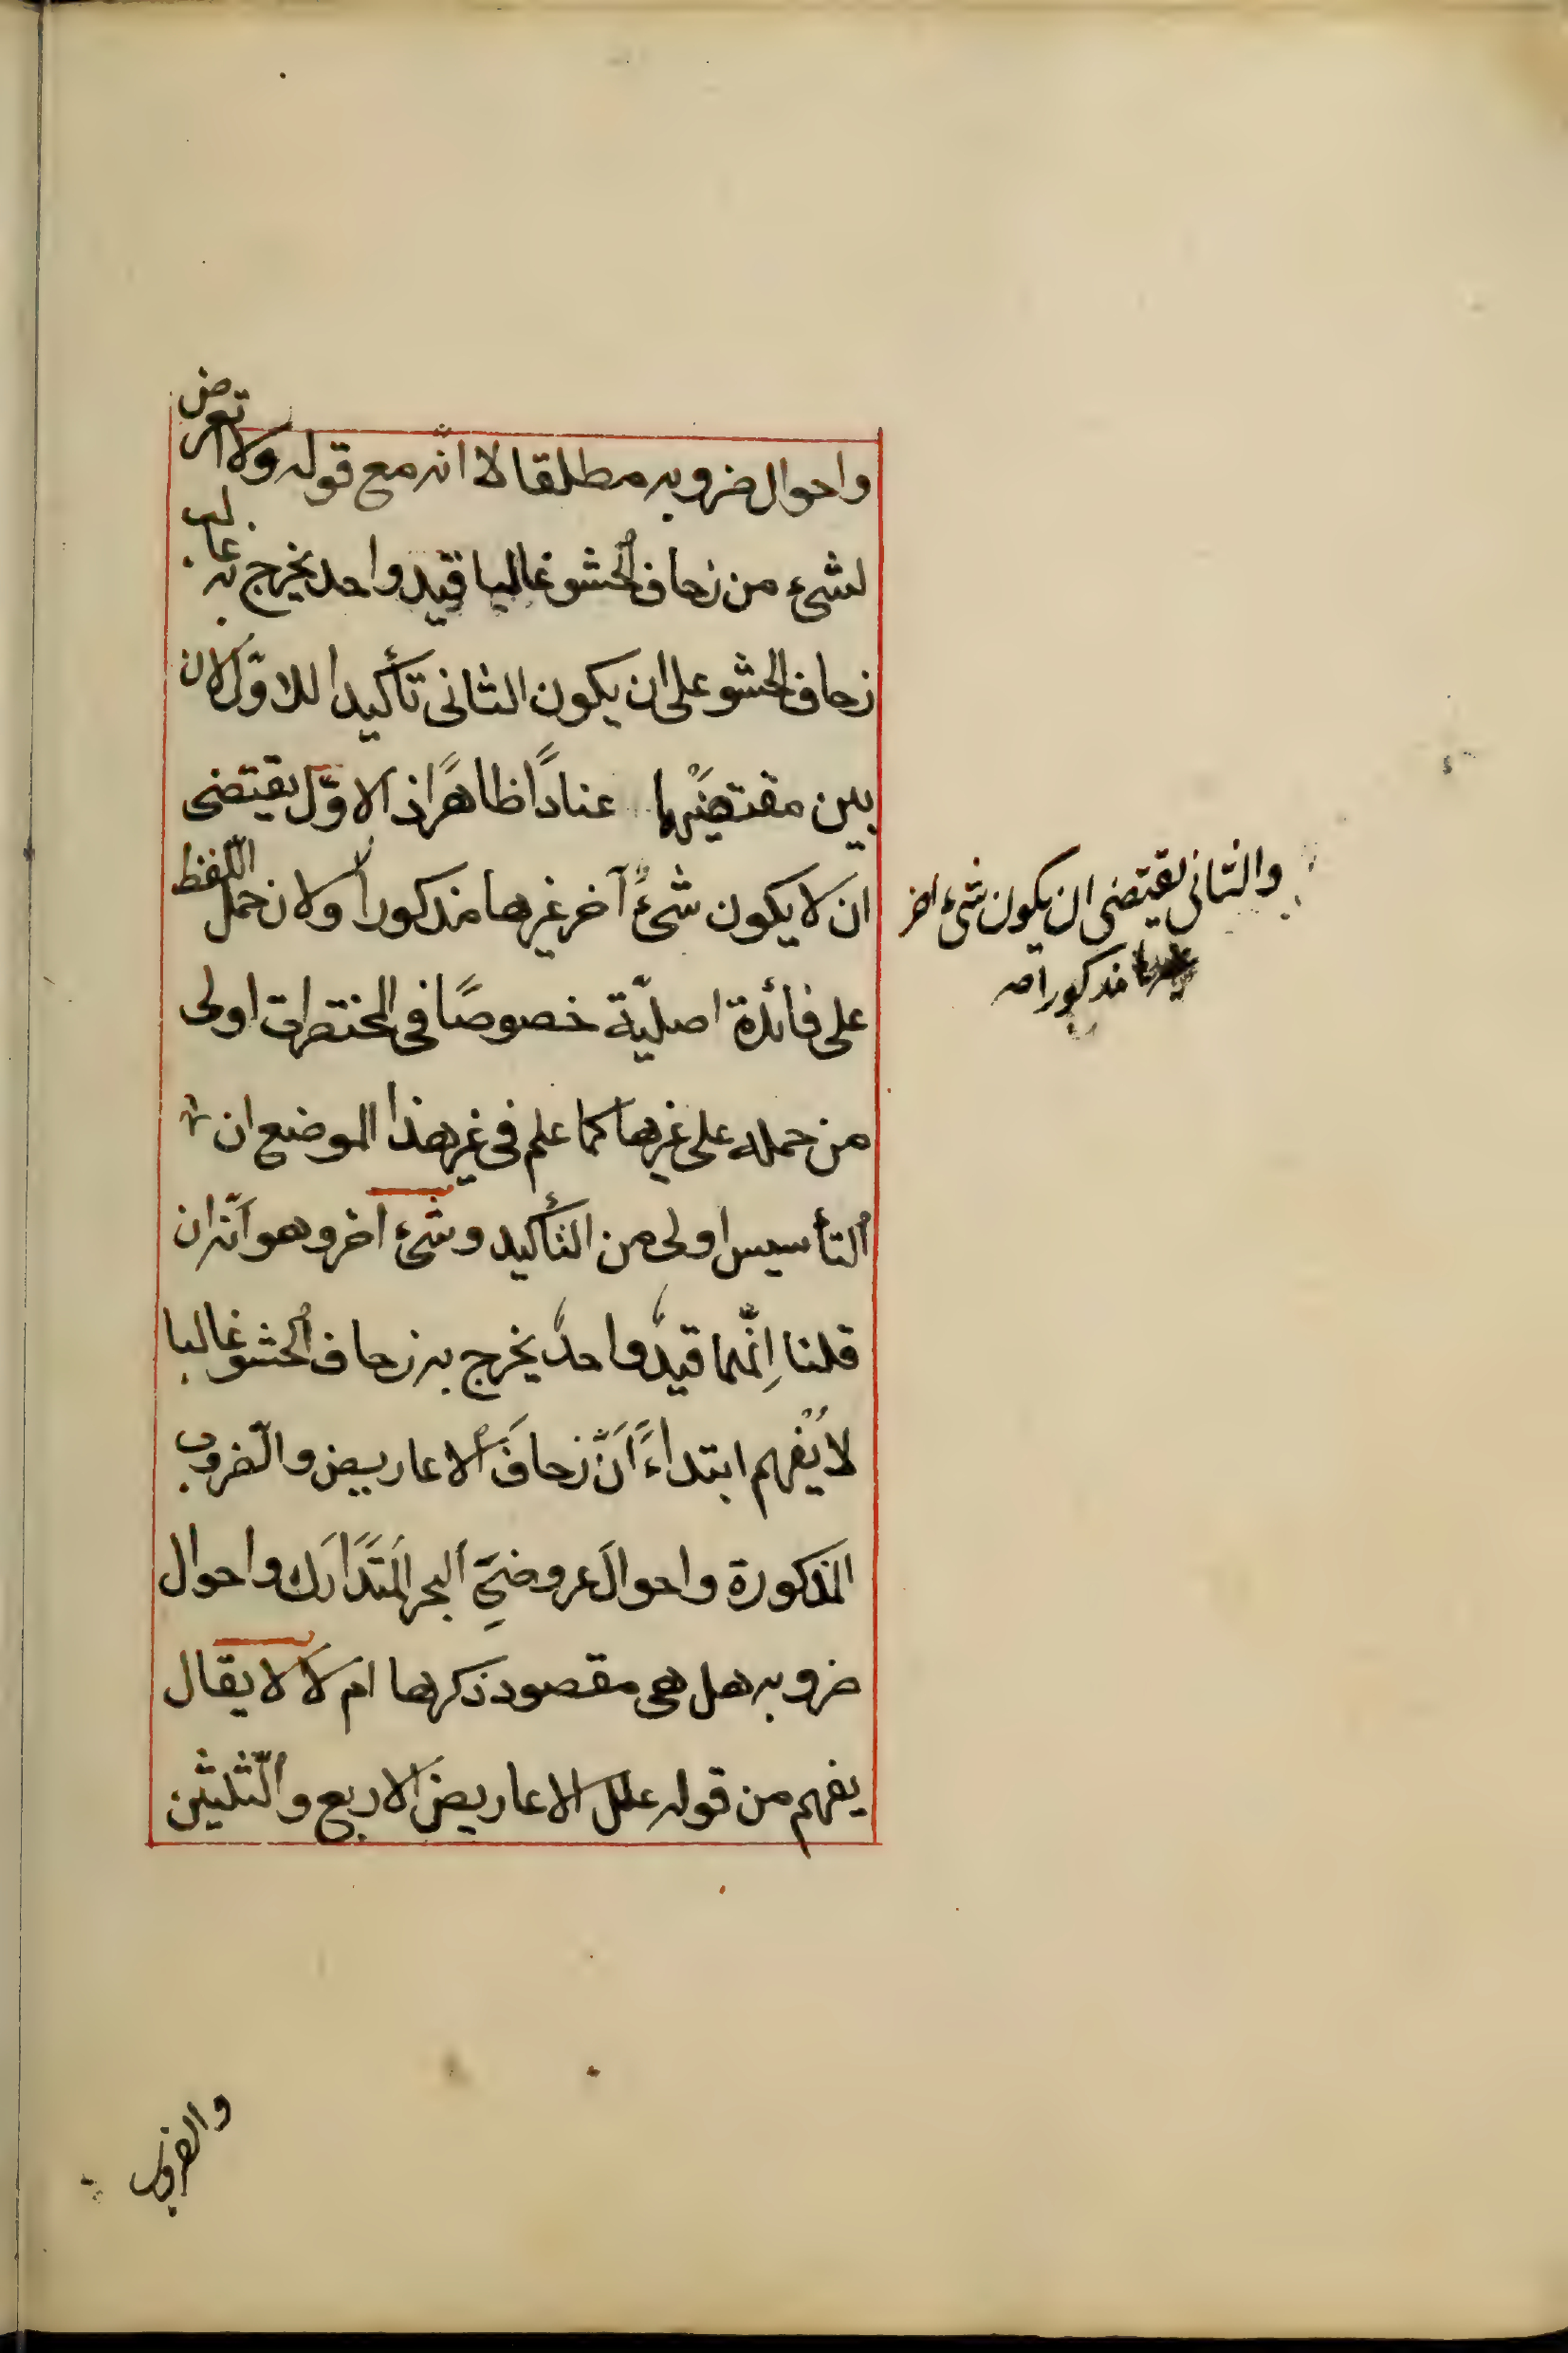 واحوال ضروبه مطلقا لا انّه مع قوله ولا تعرض
لشىء من زحاف الحشو غالبا قيد واحد يخرج به غالب
زحاف الحشو على ان يكون الثانى تأكيدا للاوّل لان
بين مقتضيهما عنادًا ظاهرًا اذ الاوّل يقتضى
ان لا يكون شىءٌ آخر غيرها مذكورا ولان حمل اللّفظ
على فائدة اصليّة خصوصًا فى المختصرات اولى
من حمله على غيرها كما علم فى غير هذا الموضع ان
التأسيس اولى من التأكيد وشىء اخر وهو انّه ان
قلنا اِنّهما قيدٌ واحدٌ يخرج به زحاف الحشو غالبا
لا يُفهم ابتداءً اَنَّ زحافَ الاعاريض والضّروب
المذكورة واحوالَ عروضَىِ البحر المتَدَارَك واحوال
ضروبه هل هى مقصود ذكرها ام لا لا يقال
يفهم من قوله علل الاعاريض الاربع والثّلثين
والثانى يقتضى ان يكون شىء اخر
غيرها مذكورا صه
والضروب